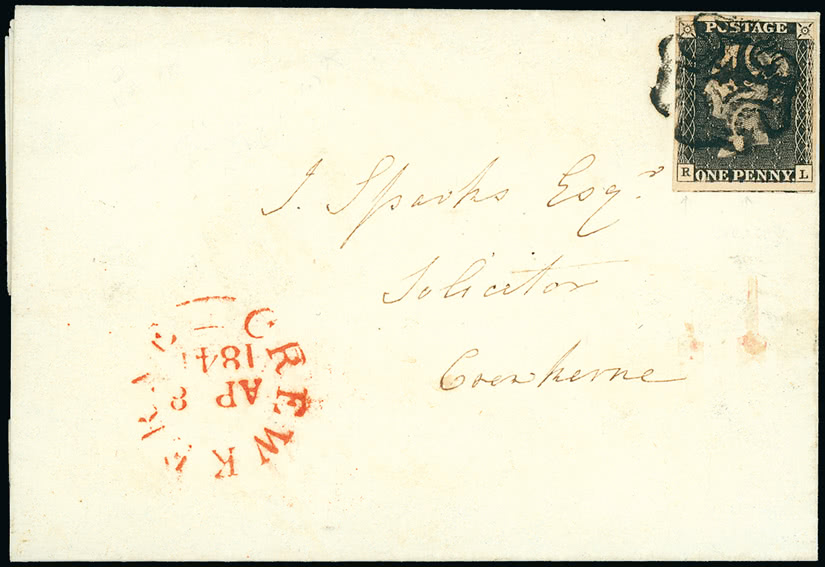 POSTAGE
R ONE PENNY. L
J. Sparks Esqr.
Solicitor
Crewkerne
CREWKERNE
AP 8
184